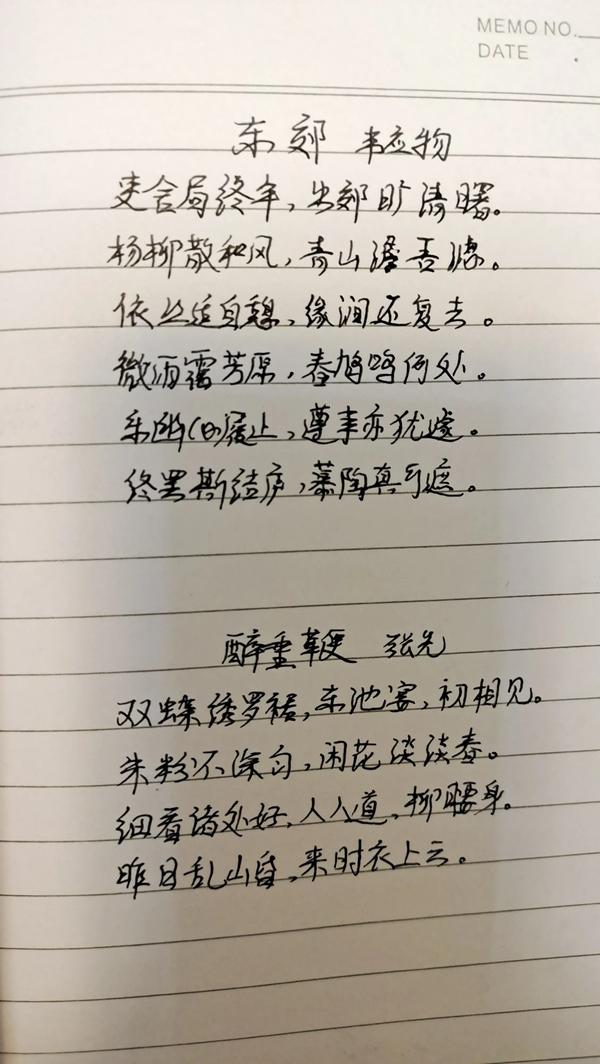 MEMO NO.
DATE .
东郊 韦应物
吏舍局终年，出郊旷清曙。
杨柳散和风，青山澹吾虑。
依丛适自憩，缘涧还复去。
微雨霭芳原，春鸠鸣何处。
乐幽心屡止，遵事亦犹遽。
终罢斯结庐，慕陶真可庶。
醉垂鞭 张先
双蝶绣罗裙，东池宴，初相见。
朱粉不深匀，闲花淡淡春。
细看诸处好，人人道，柳腰身。
昨日乱山昏，来时衣上云。